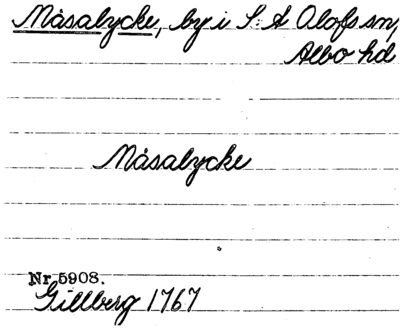 Måsalycke, by i S:t Olofs sn,
Albo hd
Måsalycke
Nr 5908.
Gillberg 1767